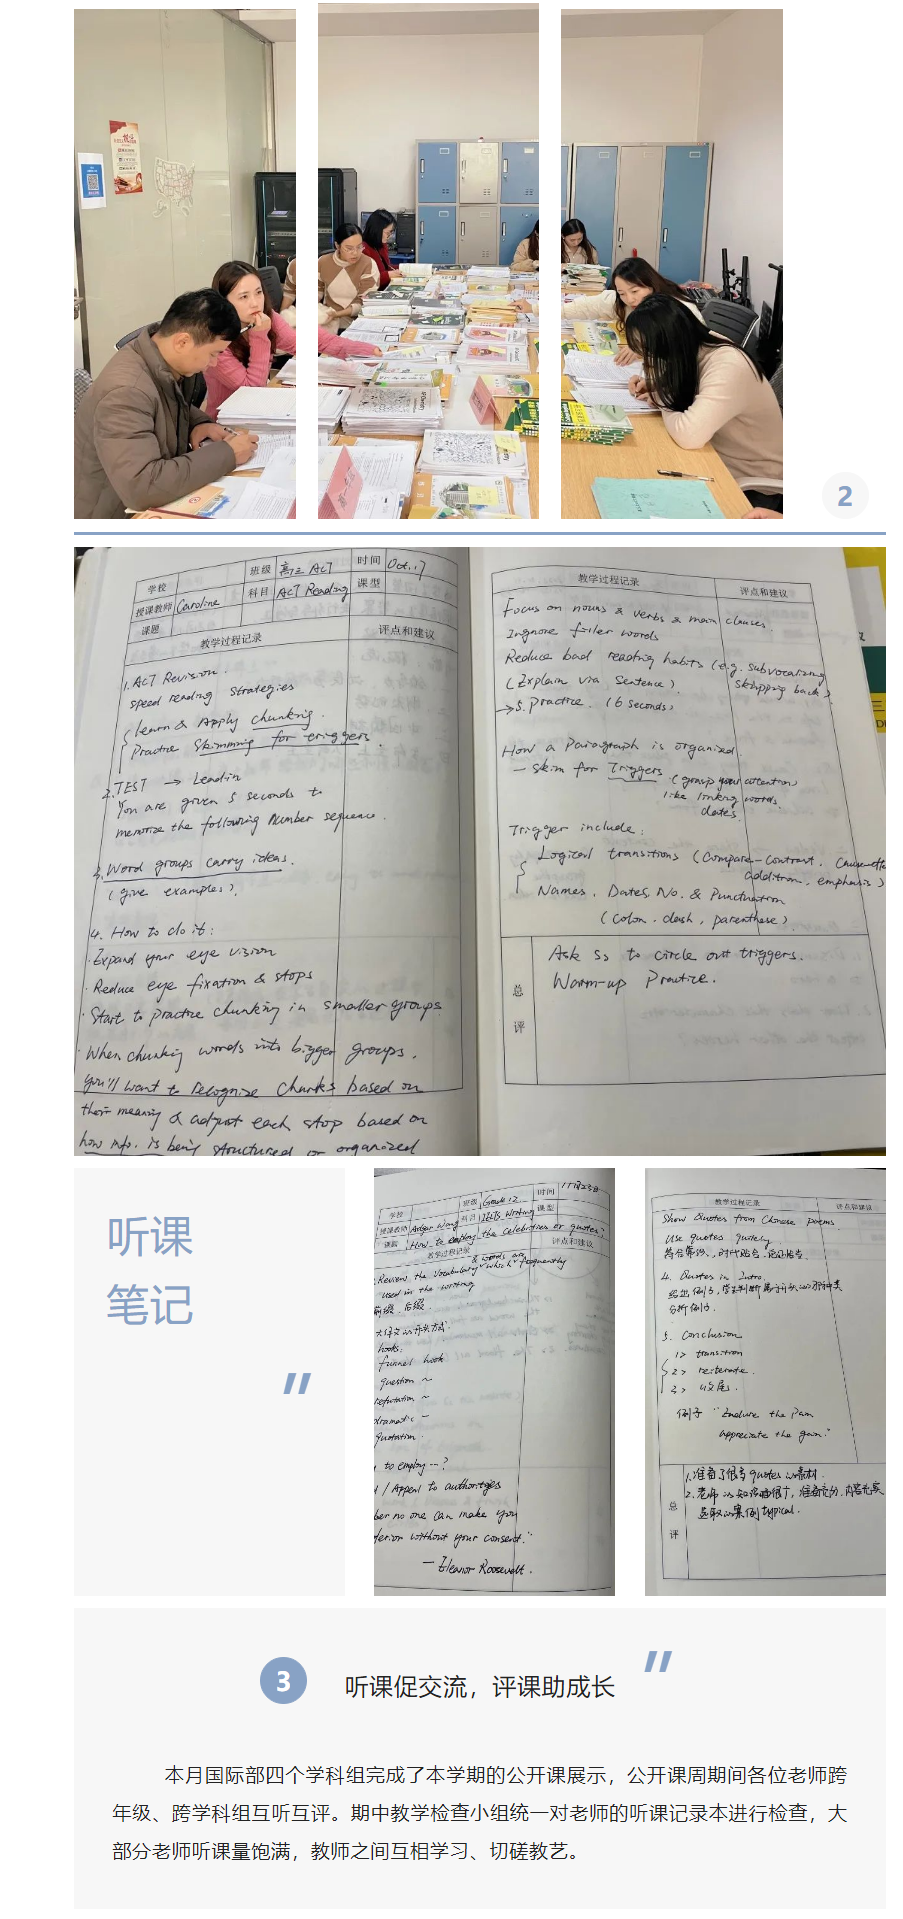 2
学校
班级 高二 ACT
时间 Oct. 17
授课教师 Caroline
科目 ACT Reading
课型
课题
教学过程记录
评点和建议
1. ACT Revision.
speed reading strategies
learn & Apply chunking.
Practice Skimming for triggers.
2. TEST → Leadin
You are given 5 seconds to
memorize the following number sequence.
3. Word groups carry ideas.
(give examples).
4. How to do it:
· Expand your eye vision
· Reduce eye fixation & stops
· Start to practice chunking in smaller groups
· When chunking words into bigger groups.
you'll want to recognize chunks based on
their meaning & adjust each stop based on
how info. is being structured or organized
教学过程记录
评点和建议
Focus on nouns & verbs & main clauses.
Ingnore filer words
Reduce bad reading habits (e.g. subvocalizing
(Explain via Sentence). skipping back)
→ 5. Practice. (6 seconds)
How a Paragraph is organized.
— skim for Triggers. (grasp your attention)
like linking words.
dates.
Trigger include:
Logical transitions (Compare-contrast. Cause-effect
addition, emphasis)
Names. Dates. No. & Punctuation
(colon. dash, parenthese)
总评
Ask Ss to circle out triggers.
Warm-up Practice.
听课
笔记
学校
班级 Grade 12
时间 11月23日
授课教师 Wang
科目 IELTS Writing
课型
课题 How to the celebrities or quotes,
教学过程记录
评点和建议
& words are
Review the vocabulary which frequently
used in the writing
前缀. 后缀.
大作文的开头方式
hooks:
funnel hook
question ~
refutation ~
dramatic ~
quotation.
to employ --?
/ Appeal to authorities
ber no one can make you
ferior without your consent."
— Eleanor Roosevelt.
教学过程记录
评点和建议
Show Quotes from Chinese poems
Use quotes quitely
时代贴合.
4. Quotes in Intro.
给出例子, 学生判断属于开头的哪种类
分析例子.
5. Conclusion
1> transition
2> reiterate.
3> 收尾.
例子 "Endure the Pain
appreciate the gain."
总评
1. 准备了很多 quotes 的素材.
2. 老师的知识面很广, 准备充分. 内容充实
选取的案例 typical.
3
听课促交流，评课助成长
本月国际部四个学科组完成了本学期的公开课展示，公开课周期间各位老师跨
年级、跨学科组互听互评。期中教学检查小组统一对老师的听课记录本进行检查，大
部分老师听课量饱满，教师之间互相学习、切磋教艺。